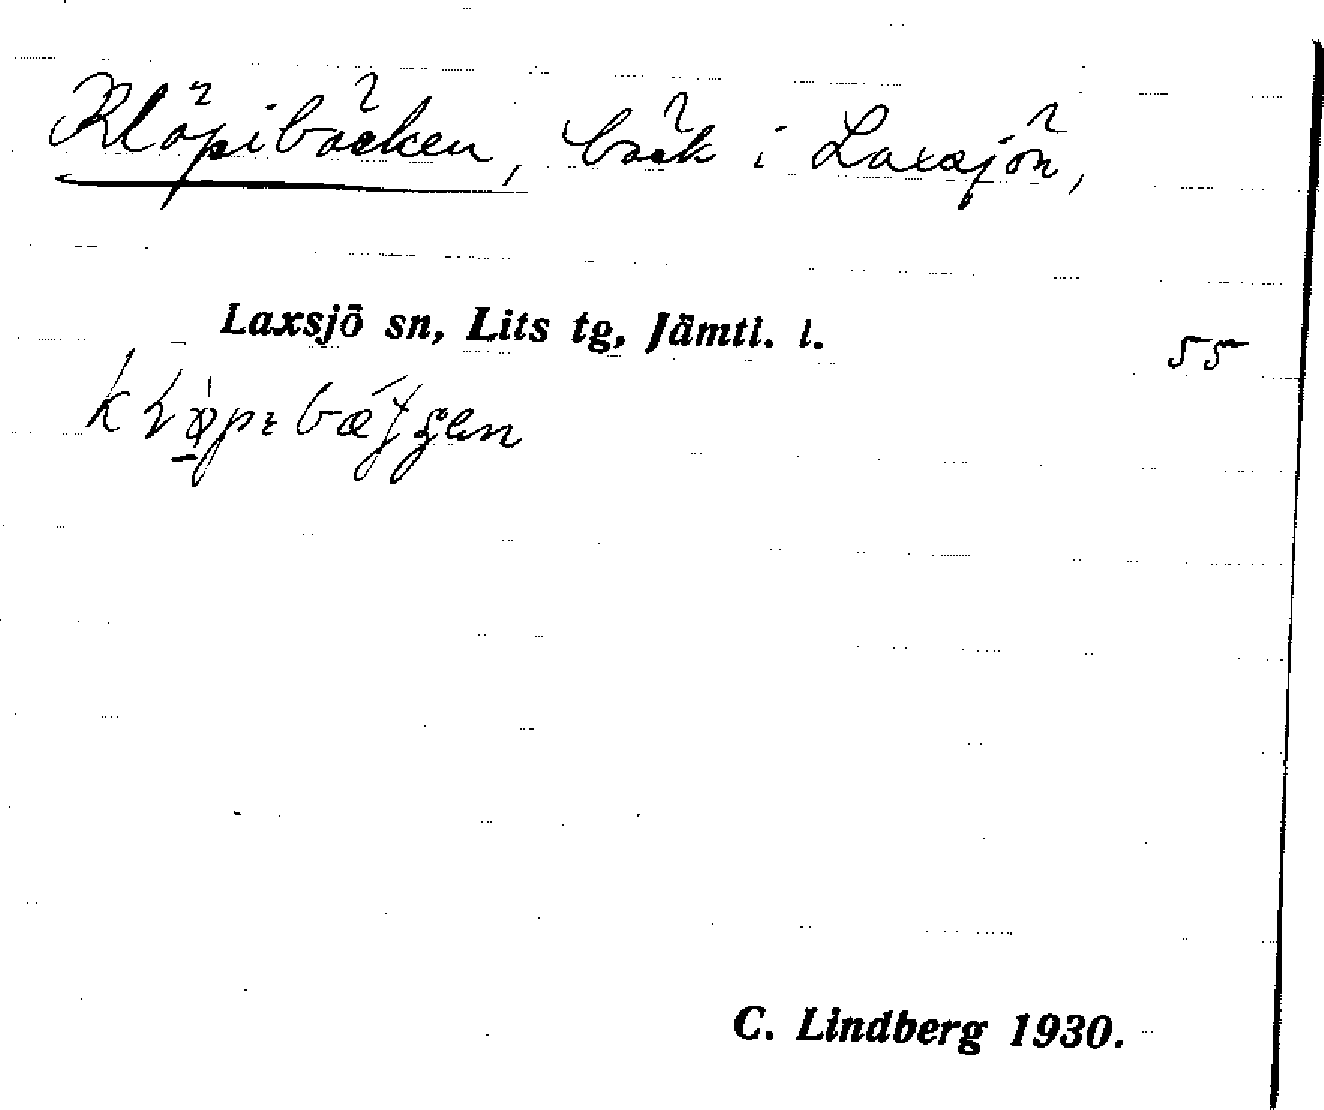 Klöpibäcken, bäck i Laxsjön,
Laxsjö sn, Lits tg, Jämtl. l.
55
C. Lindberg 1930.